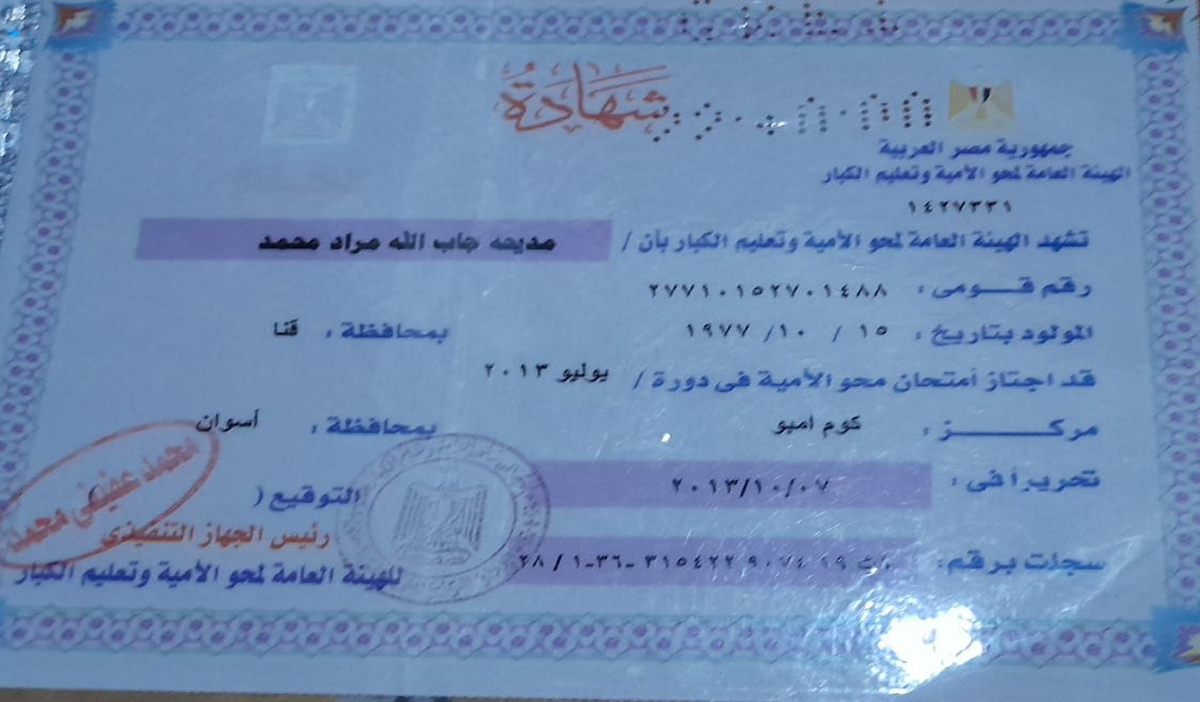 شهادة
جمهورية مصر العربية
الهيئة العامة لمحو الأمية وتعليم الكبار
١٤٢٧٣٣١
تشهد الهيئة العامة لمحو الأمية وتعليم الكبار بأن / مديحه جاب الله مراد محمد
رقم قـــومى : ٢٧٧١٠١٥٢٧٠١٤٨٨
المولود بتاريخ : ١٥ / ١٠ / ١٩٧٧ بمحافظة : قنا
قد اجتاز أمتحان محو الأمية فى دورة / يوليو ٢٠١٣
مركــــــــز : كوم امبو بمحافظة : أسوان
تحريراً فى : ٢٠١٣/١٠/٠٧
سجلت برقم : ١٩ ٩٠٧٤ ٣١٥٤٢٢ -٣٦-١ / ٢٨
التوقيع (
محمد عفيفى محمد
رئيس الجهاز التنفيذى
للهيئة العامة لمحو الأمية وتعليم الكبار